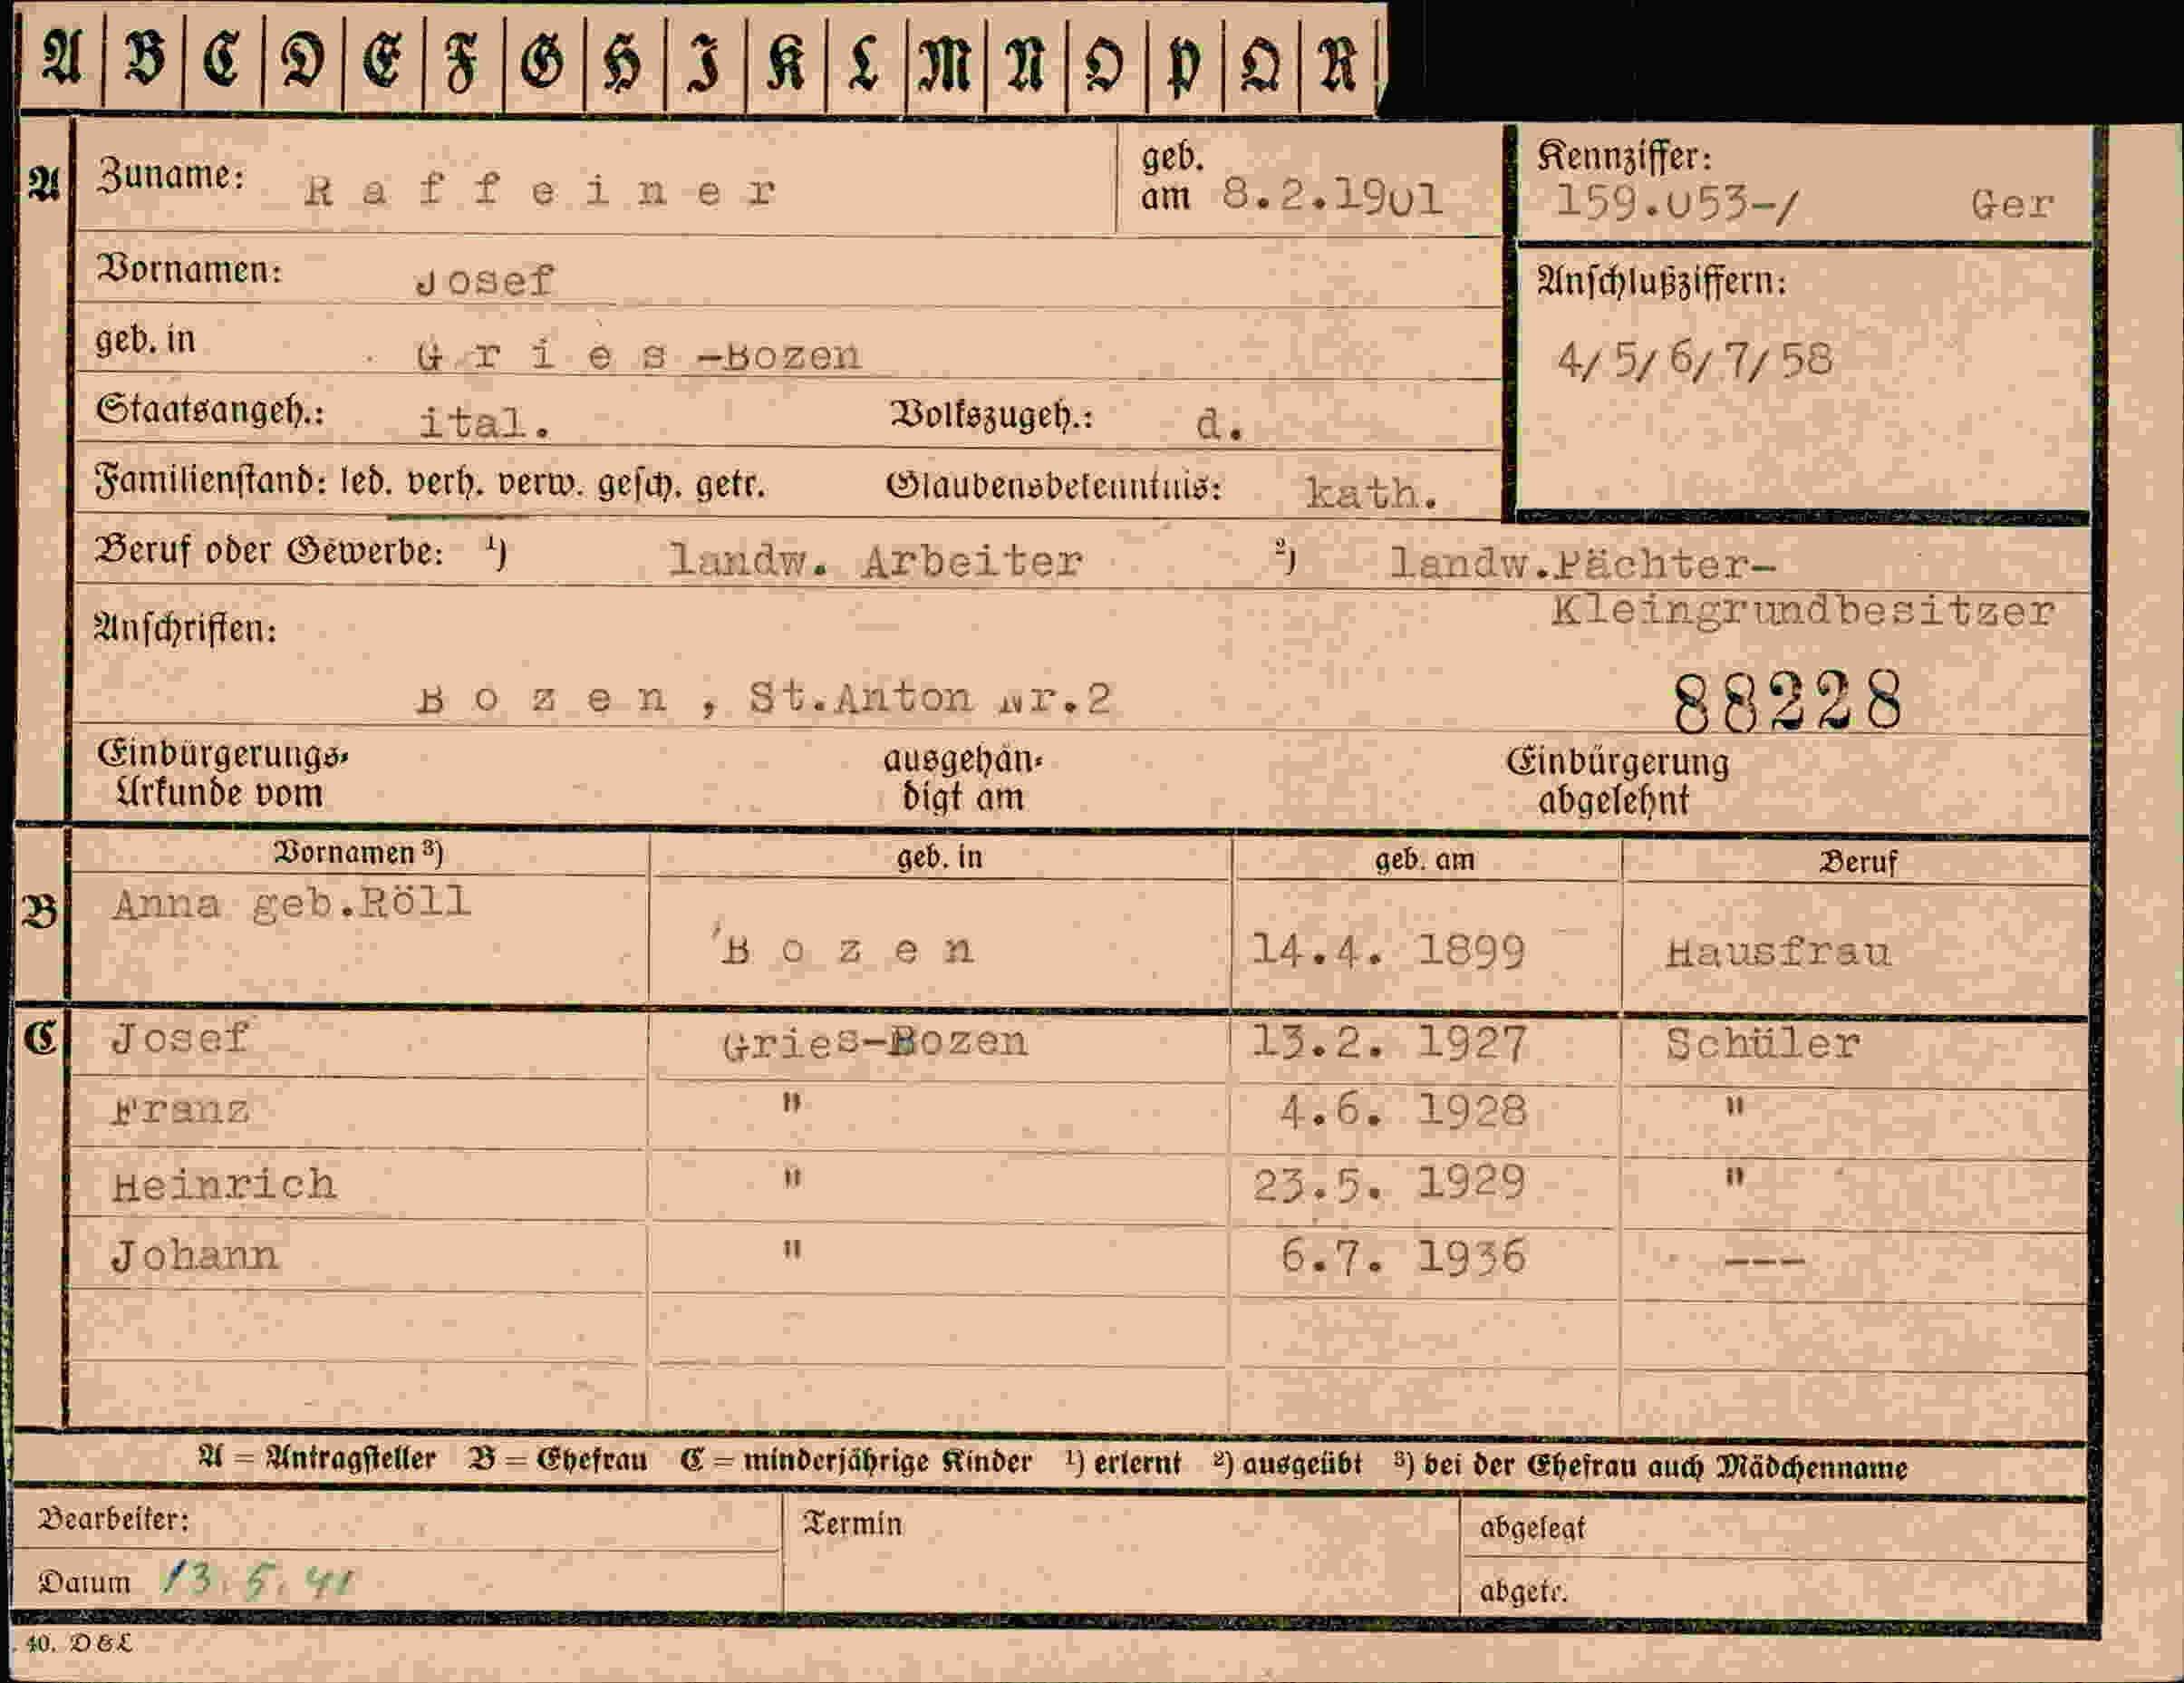 A B C D E F G H I K L M N O P Q R
A Zuname: Raffeiner geb. am 8.2.1901 Kennziffer: 159.053-/ Ger
Vornamen: Josef Anschlußziffern:
geb. in Gries-Bozen 4/5/6/7/58
Staatsangeh.: ital. Volkszugeh.: d.
Familienstand: led. verh. verw. gesch. getr. Glaubensbekenntnis: kath.
Beruf oder Gewerbe: ¹) landw. Arbeiter ²) landw.Pächter-
Kleingrundbesitzer
Anschriften:
Bozen, St.Anton Nr.2 88228
Einbürgerungs- ausgehän- Einbürgerung
Urkunde vom digt am abgelehnt
Vornamen ³) geb. in geb. am Beruf
B Anna geb.Röll
Bozen 14.4. 1899 Hausfrau
C Josef Gries-Bozen 13.2. 1927 Schüler
Franz " 4.6. 1928 "
Heinrich " 23.5. 1929 "
Johann " 6.7. 1936 ---
A = Antragsteller B = Ehefrau C = minderjährige Kinder ¹) erlernt ²) ausgeübt ³) bei der Ehefrau auch Mädchenname
Bearbeiter: Termin abgelegt
Datum 13.5.41 abgetr.
40. D&L